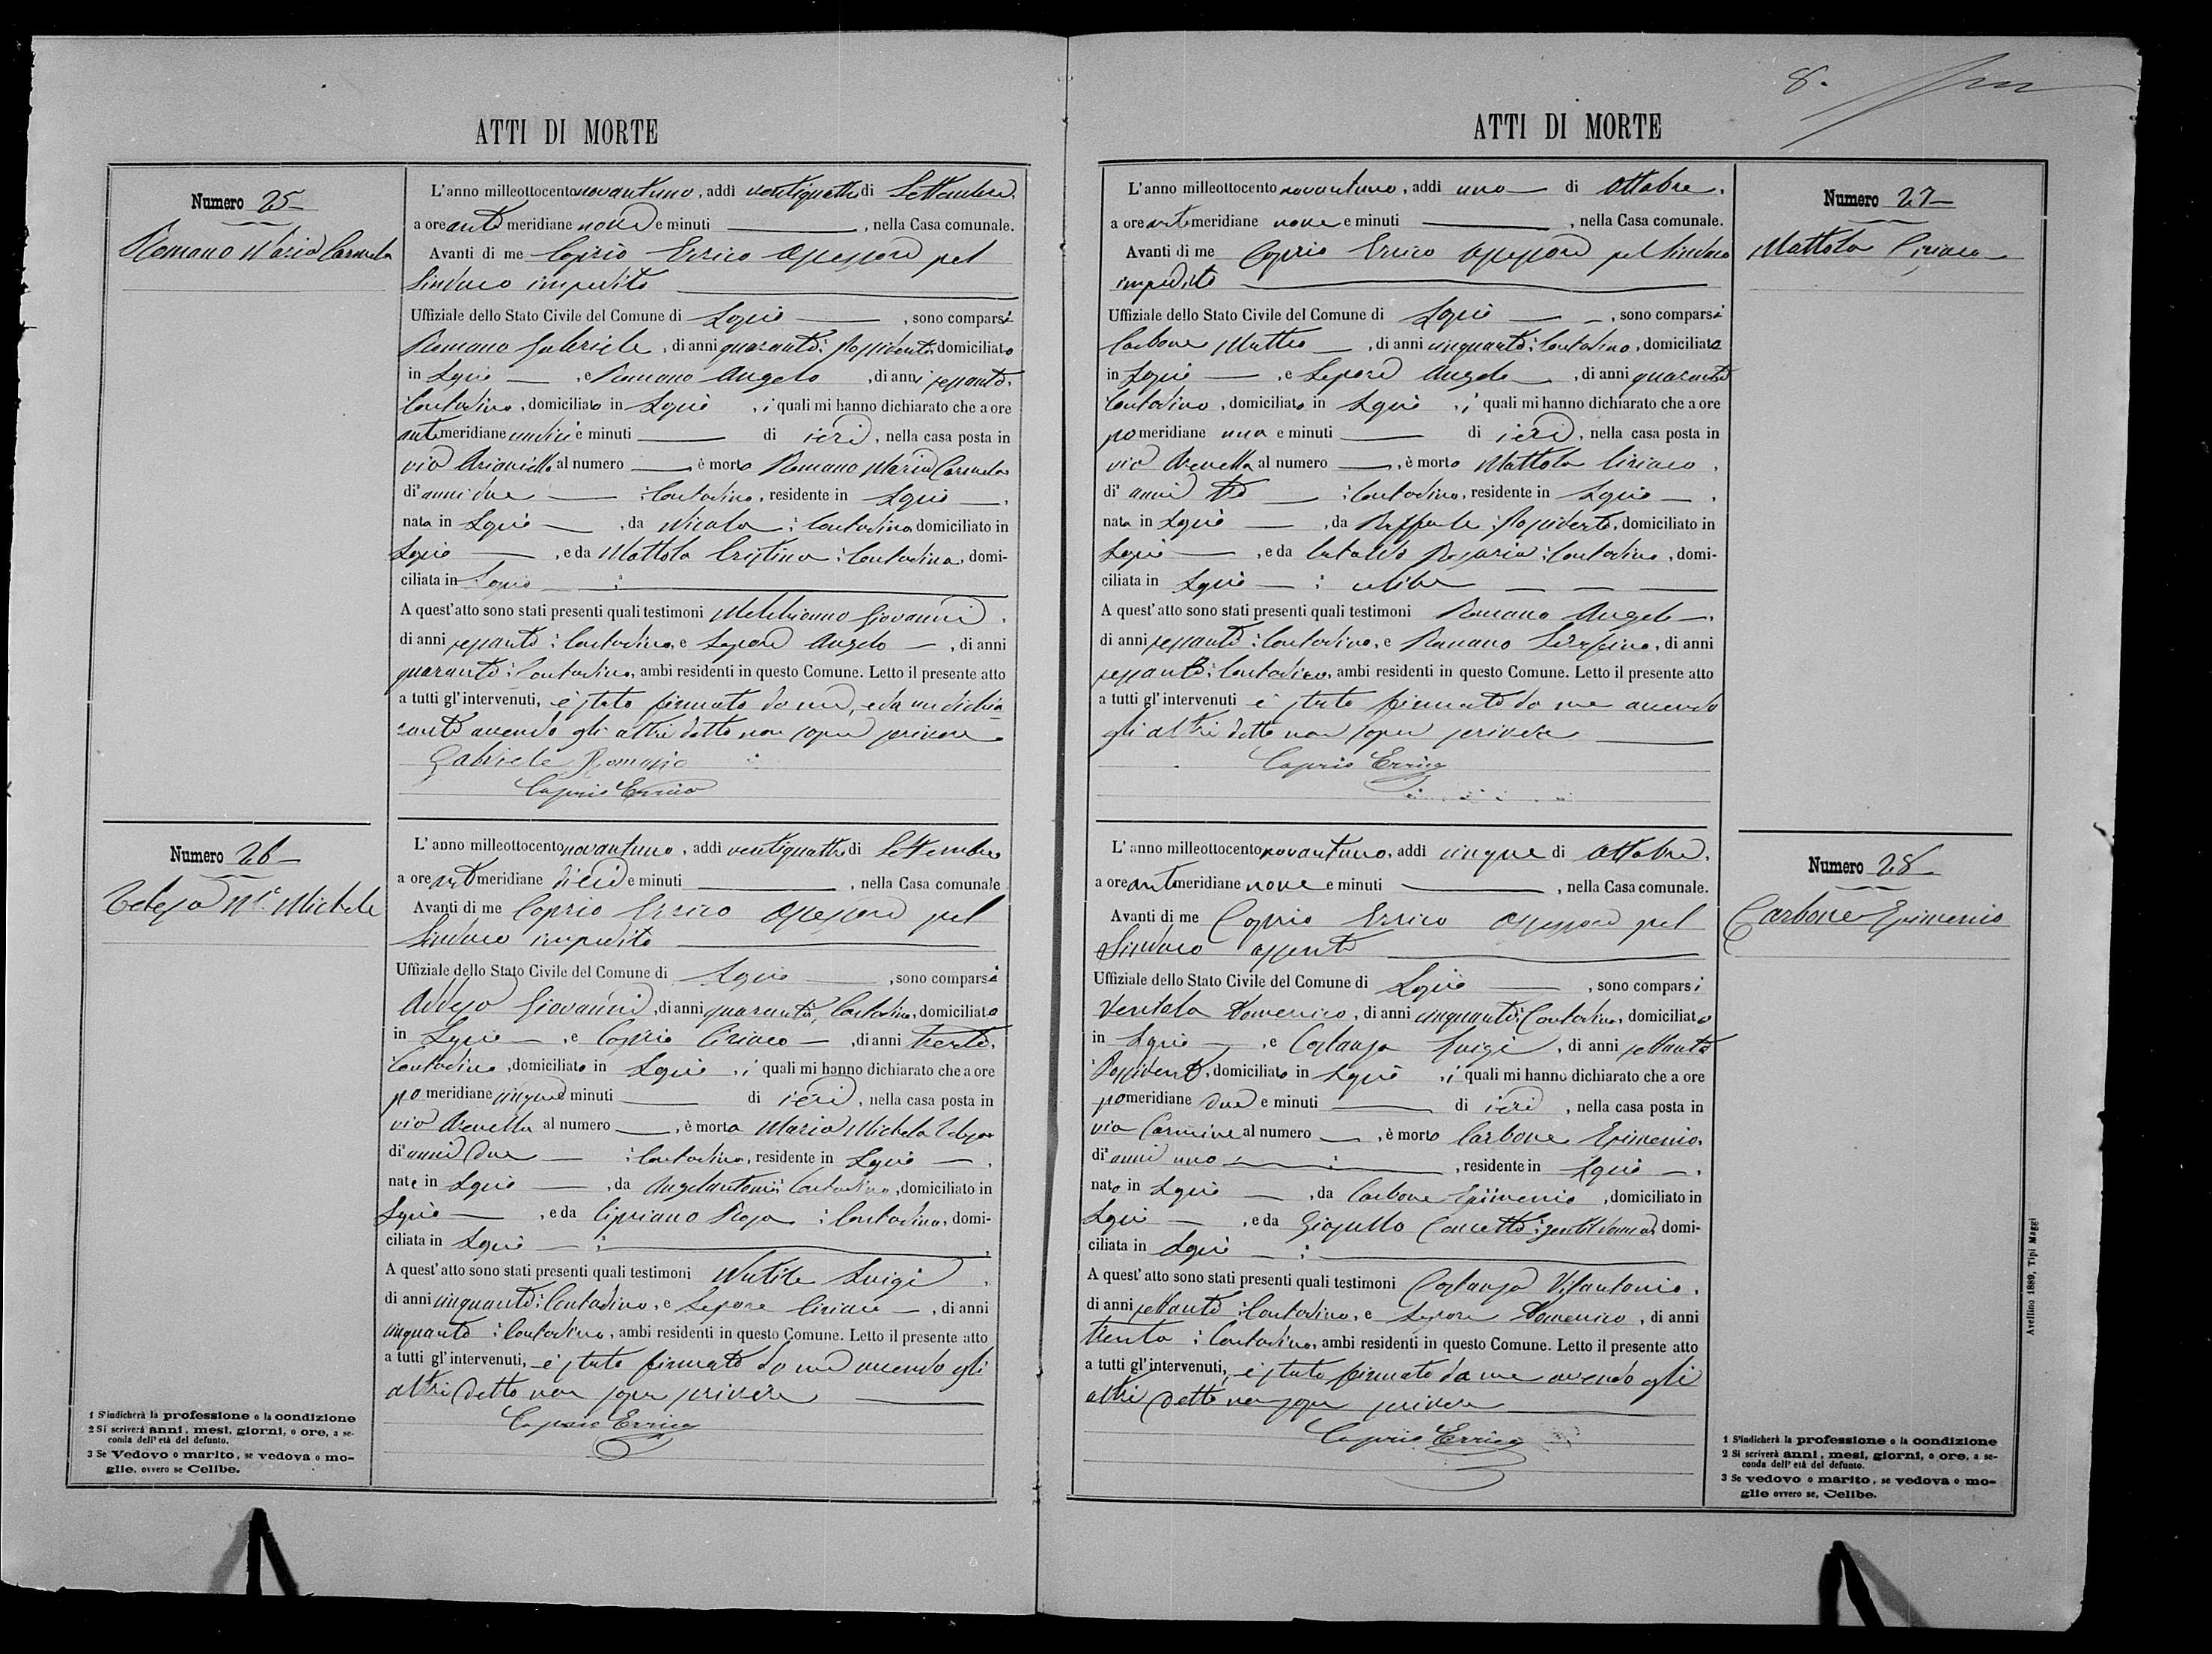 ATTI DI MORTE
Numero 25
Romano Maria Carmela
L'anno milleottocentonovantuno, addì ventiquattro di Settembre,
a ore antemeridiane nove e minuti ———, nella Casa comunale.
Avanti di me Caprio Errico Assessore pel
Sindaco impedito
Uffiziale dello Stato Civile del Comune di ———, sono comparsi
Romano Gabriele, di anni quaranta: Possidente domiciliato
in , e Romano Angelo, di anni sessanta,
Contadino, domiciliato in , i quali mi hanno dichiarato che a ore
antemeridiane undici e minuti ——— di ieri, nella casa posta in
via al numero ———, è morta Romano Maria Carmela
di anni due ——— : Contadina, residente in ———,
nata in ———, da Nicola : Contadino domiciliato in
———, e da Mattola Cristina : Contadina, domi-
ciliata in ——— :
A quest'atto sono stati presenti quali testimoni Giovanni,
di anni sessanta : Contadino, e Lepore Angelo —, di anni
quaranta : Contadino, ambi residenti in questo Comune. Letto il presente atto
a tutti gl'intervenuti, è stato firmato da me, e da un dichia
rante avendo gli altri detto non saper scrivere
Gabriele Romano
Caprio Errico
Numero 26
Telesa M.a Michela
L'anno milleottocentonovantuno, addì ventiquattro di Settembre
a ore antemeridiane dieci e minuti ———, nella Casa comunale
Avanti di me Caprio Errico Assessore pel
Sindaco impedito
Uffiziale dello Stato Civile del Comune di ———, sono comparsi
Giovanni, di anni quaranta, Contadino, domiciliato
in —, e Caprio Ciriaco —, di anni trenta,
Contadino, domiciliato in , i quali mi hanno dichiarato che a ore
pomeridiane cinque minuti ——— di ieri, nella casa posta in
via Arenella al numero ———, è morta Maria Michela Telesa
di anni due — : Contadina, residente in —,
nata in ———, da Angelantonio: Contadino, domiciliato in
———, e da Cipriano Rosa : Contadina, domi-
ciliata in — :
A quest'atto sono stati presenti quali testimoni Luigi,
di anni cinquanta : Contadino, e Lepore Ciriaco —, di anni
cinquanta : Contadino, ambi residenti in questo Comune. Letto il presente atto
a tutti gl'intervenuti, è stato firmato da me avendo gli
altri detto non saper scrivere
Caprio Errico
1 S'indicherà la professione o la condizione
2 Si scriverà anni, mesi, giorni, o ore, a se-
conda dell'età del defunto.
3 Se Vedovo o marito, se vedova o mo-
glie, ovvero se Celibe.
8.
ATTI DI MORTE
Numero 27
Mattola Ciriaco
L'anno milleottocento novantuno, addì uno di Ottobre,
a ore antemeridiane nove e minuti ———, nella Casa comunale.
Avanti di me Caprio Errico Assessore pel Sindaco
impedito
Uffiziale dello Stato Civile del Comune di — —, sono comparsi
Carbone Matteo —, di anni cinquanta : Contadino, domiciliato
in —, e Lepore Angelo —, di anni quaranta
Contadino, domiciliato in , i quali mi hanno dichiarato che a ore
pomeridiane una e minuti ——— di ieri, nella casa posta in
via Arenella al numero ———, è morto Mattola Ciriaco,
di anni tre — : Contadino, residente in —,
nato in —, da Raffaele : Possidente, domiciliato in
—, e da Cataldo Rosaria : Contadina, domi-
ciliata in — : celibe — — —
A quest'atto sono stati presenti quali testimoni Romano Angelo —,
di anni sessanta : Contadino, e Romano Serafino, di anni
sessanta : Contadino, ambi residenti in questo Comune. Letto il presente atto
a tutti gl'intervenuti è stato firmato da me avendo
gli altri detto non saper scrivere
Caprio Errico
Numero 28
Carbone Epimenio
L'anno milleottocentonovantuno, addì cinque di Ottobre,
a ore antemeridiane nove e minuti ———, nella Casa comunale.
Avanti di me Caprio Errico Assessore pel
Sindaco assente
Uffiziale dello Stato Civile del Comune di ———, sono comparsi
Ventola Domenico, di anni cinquanta: Contadino, domiciliato
in —, e Costanza Luigi, di anni settanta
: Possidente, domiciliato in , i quali mi hanno dichiarato che a ore
pomeridiane due e minuti ——— di ieri, nella casa posta in
via Carmine al numero —, è morto Carbone Epimenio,
di anni uno — : —, residente in —,
nato in —, da Carbone Epimenio, domiciliato in
—, e da Concetta : gentildonna, domi-
ciliata in — :
A quest'atto sono stati presenti quali testimoni Costanza Vitantonio,
di anni settanta : Contadino, e Lepore Domenico, di anni
trenta : Contadino, ambi residenti in questo Comune. Letto il presente atto
a tutti gl'intervenuti, è stato firmato da me avendo gli
altri detto non saper scrivere
Caprio Errico
1 S'indicherà la professione o la condizione
2 Si scriverà anni, mesi, giorni, o ore, a se-
conda dell'età del defunto.
3 Se vedovo o marito, se vedova o mo-
glie ovvero se, Celibe.
Avellino 1889, Tipi Maggi